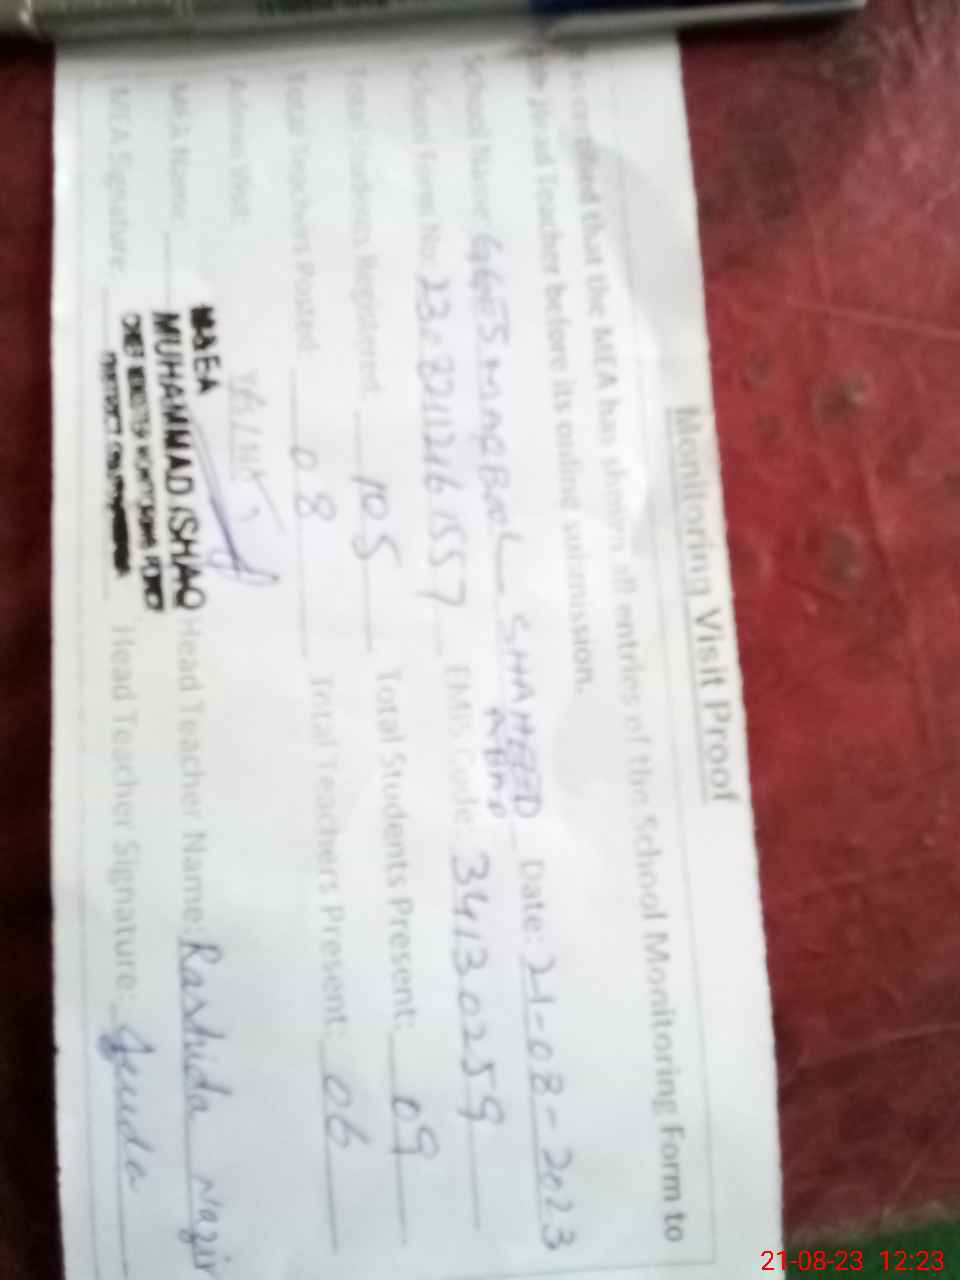 Monitoring Visit Proof
is certified that the MEA has shown all entries of the School Monitoring Form to
the Head Teacher before its online submission.
School Name: GGES MAQBOOL SHAHEED ABAD Date: 21-08-2023
School Form No: EMIS Code: 34130259
Total Students Registered: 105 Total Students Present: 09
Total Teachers Posted: 08 Total Teachers Present: 06
Admin Visit:
MEA
MEA Name: MUHAMMAD ISHAQ Head Teacher Name: Rashida Nazir
CHIEF MINISTER MONITORING FORCE
MEA Signature: DISTRICT Head Teacher Signature:
21-08-23 12:23